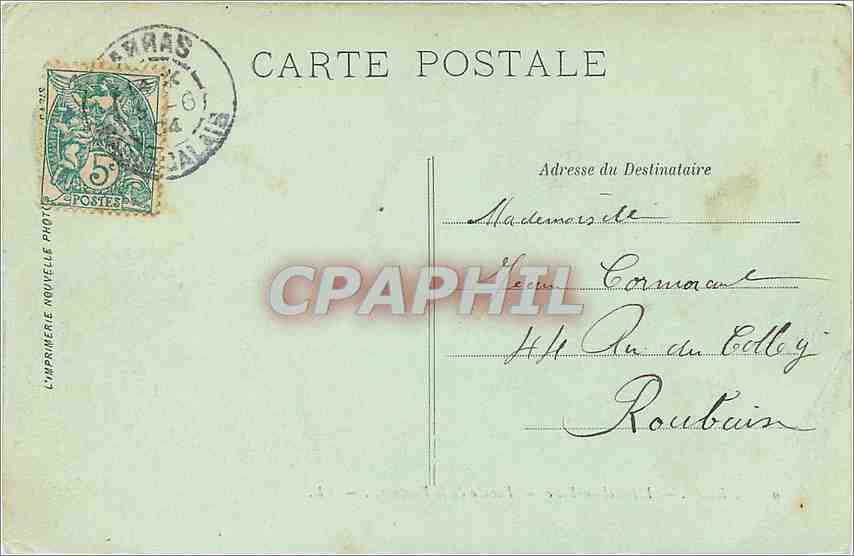 CARTE POSTALE
ARRAS
04
PAS-DE-CALAIS
5c
POSTES
L'IMPRIMERIE NOUVELLE PHOTO
PARIS
CPAPHIL
Adresse du Destinataire
Mademoiselle
Cormorant
44 Rue du Colleg
Roubaix